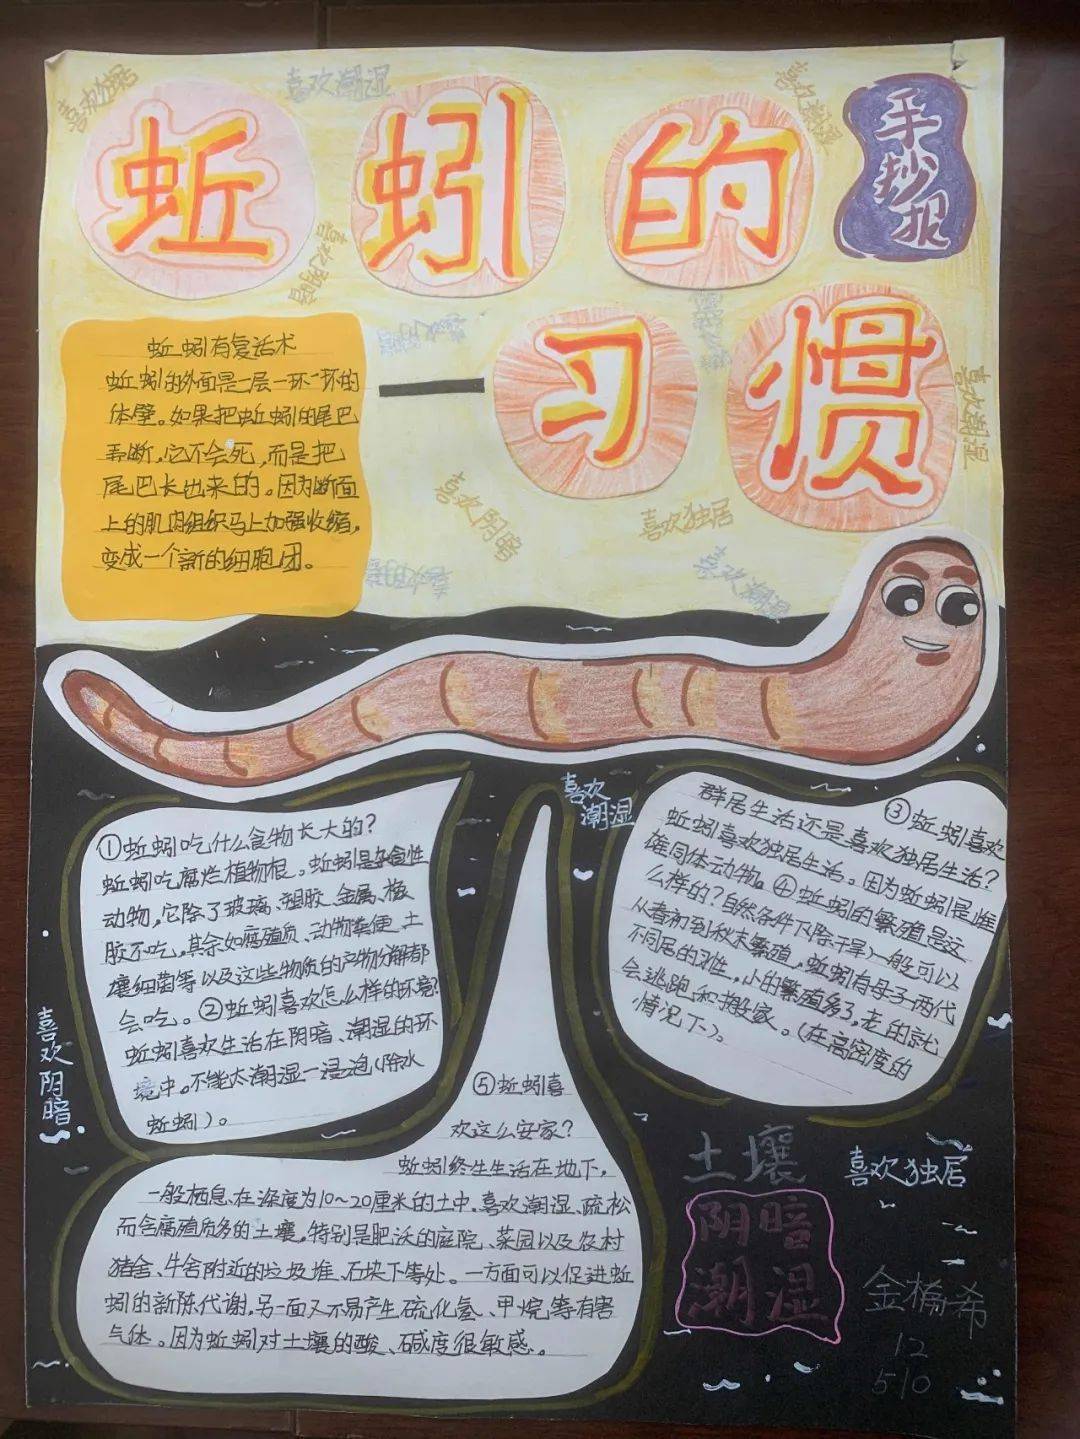 喜欢独居
喜欢潮湿
喜欢潮湿
蚯蚓的
手抄报
喜欢阴暗
习惯
喜欢潮湿
喜欢阴暗
喜欢独居
喜欢潮湿
蚯蚓有复活术
蚯蚓的外面是一层一环一环的
体壁。如果把蚯蚓的尾巴
弄断,它不会死,而是把
尾巴长出来的。因为断面
上的肌肉组织马上加强收缩,
变成一个新的细胞团。
喜欢
潮湿
①蚯蚓吃什么食物长大的?
蚯蚓吃腐烂植物根。蚯蚓是杂食性
动物,它除了玻璃、塑胶、金属、橡
胶不吃,其余如腐殖质、动物粪便、土
壤细菌等以及这些物质的产物分解都
会吃。②蚯蚓喜欢怎么样的环境?
蚯蚓喜欢生活在阴暗、潮湿的环
境中。不能太潮湿一浸泡(除水
蚯蚓)。
③蚯蚓喜欢
群居生活还是喜欢独居生活?
蚯蚓喜欢独居生活。因为蚯蚓是雌
雄同体动物。④蚯蚓的繁殖是这
么样的?自然条件下(除干旱)一般可以
从春初到秋末繁殖,蚯蚓有母子两代
不同居的习性。小的繁殖多了,老的就
会逃跑和搬家。(在高密度的
情况下)。
喜欢阴暗
⑤蚯蚓喜
欢这么安家?
蚯蚓终生生活在地下,
一般栖息在深度为10~20厘米的土中。喜欢潮湿、疏松
而含腐殖质多的土壤,特别是肥沃的庭院、菜园以及农村
猪舍、牛舍附近的垃圾堆、石块下等处。一方面可以促进蚯
蚓的新陈代谢,另一面又不易产生硫化氢、甲烷等有害
气体。因为蚯蚓对土壤的酸、碱度很敏感。
土壤
阴暗
潮湿
喜欢独居
金橋希
12
510